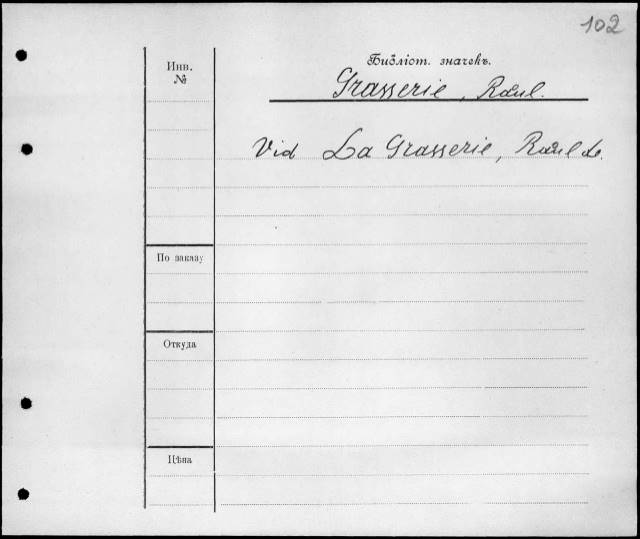 102
Библіот. значекъ.
Инв.
№
Grasserie, Raoul.
Vid La Grasserie, Raoul de.
По заказу
Откуда
Цѣна